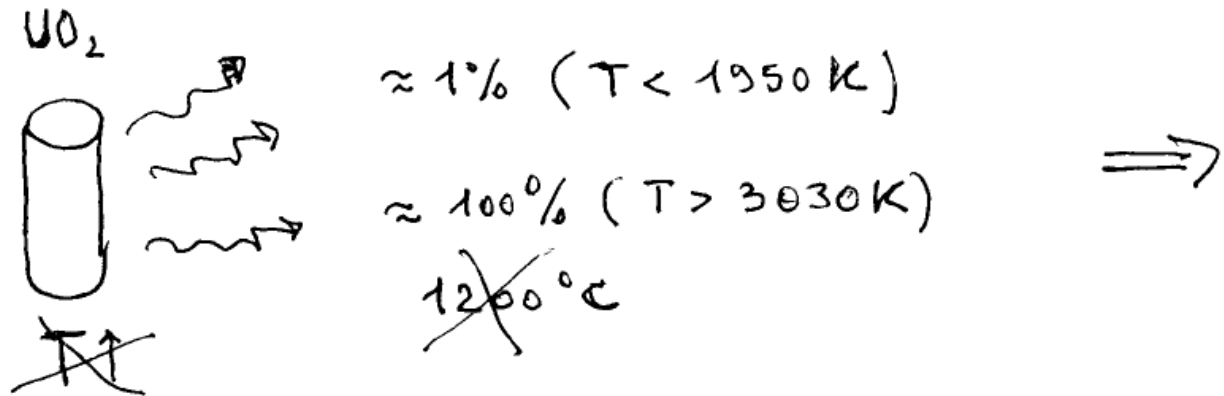 UO₂
≈ 1% (T < 1950 K)
≈ 100% (T > 3030 K)
1200°C
T↑